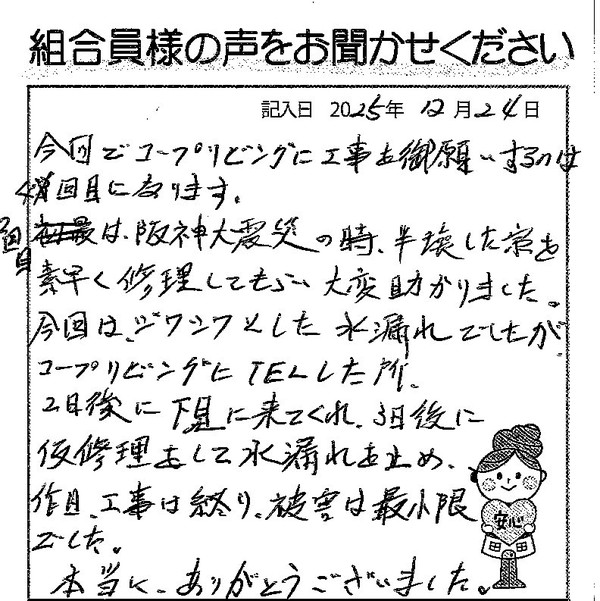 組合員様の声をお聞かせください
記入日 2025年 12月24日
今回でコープリビングに工事を御願いするのは
4回目になります。
1回目は、阪神大震災の時、半壊した家を
素早く修理してもらい大変助かりました。
今回は、ジワジワとした水漏れでしたが
コープリビングにTELした所、
2日後に下見に来てくれ、3日後に
仮修理をして水漏れを止め、
作日、工事は終り、被害は最小限
でした。
本当に、ありがとうございました。
安心